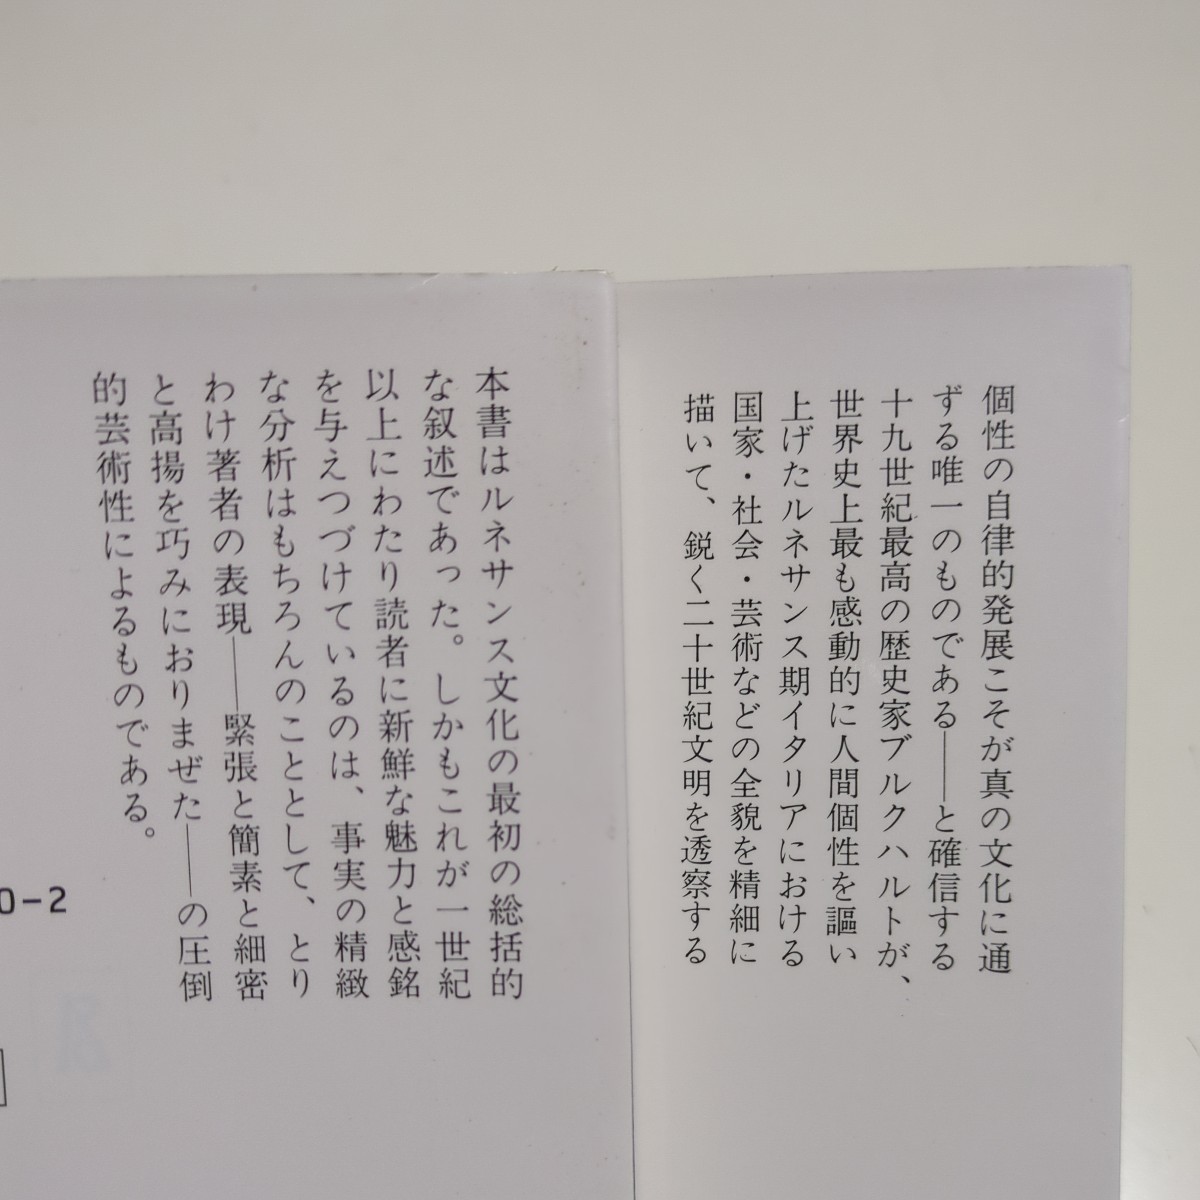 個性の自律的発展こそが真の文化に通
ずる唯一のものである——と確信する
十九世紀最高の歴史家ブルクハルトが、
世界史上最も感動的に人間個性を謳い
上げたルネサンス期イタリアにおける
国家・社会・芸術などの全貌を精細に
描いて、鋭く二十世紀文明を透察する
本書はルネサンス文化の最初の総括的
な叙述であった。しかもこれが一世紀
以上にわたり読者に新鮮な魅力と感銘
を与えつづけているのは、事実の精緻
な分析はもちろんのこととして、とり
わけ著者の表現——緊張と簡素と細密
と高揚を巧みにおりまぜた——の圧倒
的芸術性によるものである。
0-2